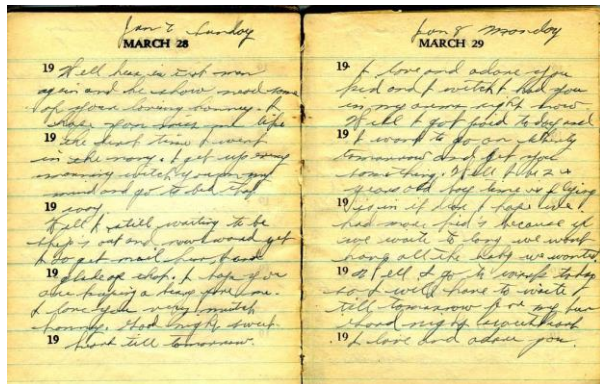 Jan 7 Sunday
MARCH 28
19 Well here is that man
again and he show need some
of your loving honney. I
hope you miss me like
19 the last time I went
in the navy. I get up every
morning witch you on my
mind and go to bed that
19 way
Well I still waiting to be
ship's out and now word yet
19
ship. I hope you
are a for me.
I love you very mutch
honny. Good night sweet
19 heart till tomorrow.
Jan 8 Monday
MARCH 29
19 I love and adore you
kid and I witch I had you
in my arms right now
19 Well I got paid to day and
I want to go on liberty
tomarrow and get you
something. Well I be 2
19 years old boy time is flying
is in it dear I hope we
had more kid's because if
we waite to long we wont
hang all the baby we wanted.
19 Well I go to work today
so I will have to waite
till tomorrow for my
good night sweetheart
19 I love and adore you.